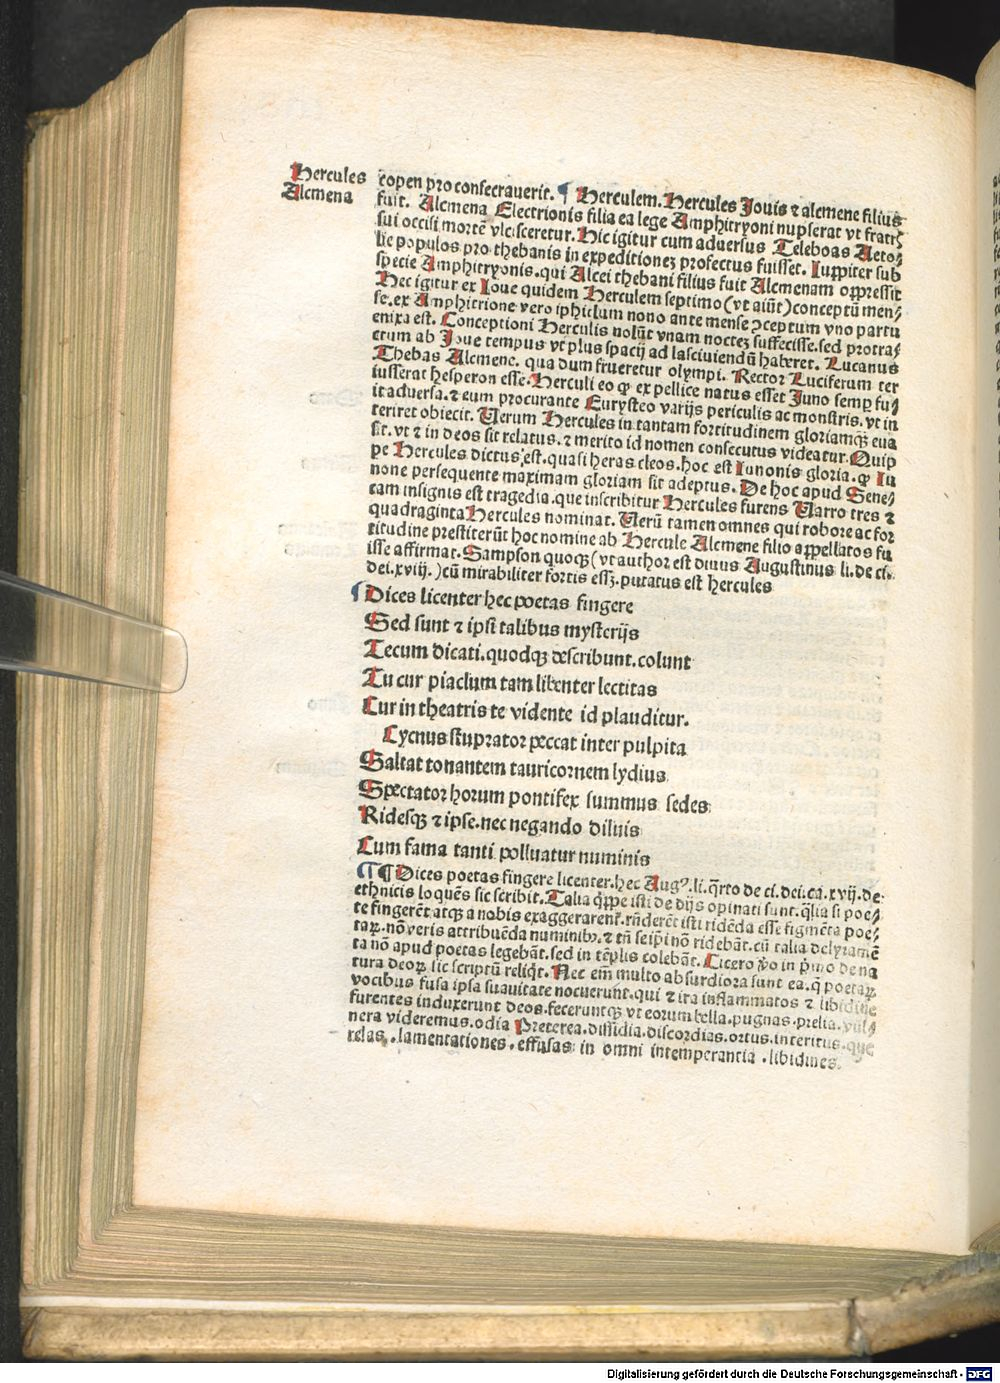 Hercules
Alcmena
eopen pro consecrauerit. ¶ Herculem. Hercules Jouis ⁊ alcmene filius
fuit. Alcmena Electrionis filia ea lege Amphitryoni nupserat vt fratrꝫ
sui occisi mortē vlcisceretur. Hic igitur cum aduersus Teleboas Aeto⸗
lie populos pro thebanis in expeditioneꝫ profectus fuisset. Iuppiter sub
specie Amphitryonis. qui Alcei thebani filius fuit Alcmenam oppressit
Hec igitur ex Ioue quidem Herculem septimo (vt aiūt) conceptū men⸗
se. ex Amphitrione vero iphiclum nono ante mense ꝯceptum vno partu
enixa est. Conceptioni Herculis nolūt vnam nocteꝫ suffecisse. sed protra⸗
ctum ab Joue tempus vt plus spacij ad lasciuiendū haberet. Lucanus
Thebas Alcmene. qua dum frueretur olympi. Rector Luciferum ter
iusserat hesperon esse. Herculi eo ꝙ ex pellice natus esset Juno semꝑ fu⸗
it aduersa. ⁊ eum procurante Eurysteo varijs periculis ac monstris. vt in
teriret obiecit. Uerum Hercules in tantam fortitudinem gloriamqꝫ eua
sit. vt ⁊ in deos sit relatus. ⁊ merito id nomen consecutus videatur. Quip
pe Hercules dictus est. quasi heras cleos. hoc est Iunonis gloria. ꝙ Iu
none persequente maximam gloriam sit adeptus. De hoc apud Sene⸗
cam insignis est tragedia. que inscribitur Hercules furens Uarro tres ⁊
quadraginta Hercules nominat. Uerū tamen omnes qui robore ac for
titudine prestiterūt hoc nomine ab Hercule Alcmene filio appellatos fu
isse affirmat. Sampson quoqꝫ (vt author est diuus Augustinus li. de ci.
dei. xviij.) cū mirabiliter fortis essꝫ. putatus est hercules
¶ Dices licenter hec poetas fingere
Sed sunt ⁊ ipsi talibus mysterijs
Tecum dicati. quodqꝫ describunt. colunt
Tu cur piaclum tam libenter lectitas
Cur in theatris te vidente id plauditur.
Cycnus stuprator peccat inter pulpita
Saltat tonantem tauricornem lydius
Spectator horum pontifex summus sedes
Ridesqꝫ ⁊ ipse. nec negando diluis
Cum fama tanti polluatur numinis
¶ ¶ Dices poetas fingere licenter. hec Augꝰ. li. q̄rto de ci. dei. ca. xvij. de
ethnicis loquēs sic scribit. Talia q̄ppe isti de dijs opinati sunt. q̄lia si poe⸗
te fingerēt atqꝫ a nobis exaggerarent᷑. rn̄derēt isti ridēda esse figmēta poe⸗
taꝝ. nō veris attribuēda numinibꝰ. ⁊ tn̄ se ip̄i nō ridebāt. cū talia delyramē
ta nō apud poetas legebāt. sed in tēplis colebāt. Cicero v̄o in p̄mo de na
tura deoꝝ sic scriptū reliq̄t. Nec em̄ multo absurdiora sunt ea. q̄ poetaꝝ
vocibus fusa ipsa suauitate nocuerunt. qui ⁊ ira inflammatos ⁊ libidine
furentes induxerunt deos. feceruntqꝫ vt eorum bella. pugnas. prelia. vul⸗
nera videremus. odia Preterea. dissidia. discordias. ortus. interitus. que
relas. lamentationes. effusas in omni intemperantia. libidines.
Digitalisierung gefördert durch die Deutsche Forschungsgemeinschaft - DFG